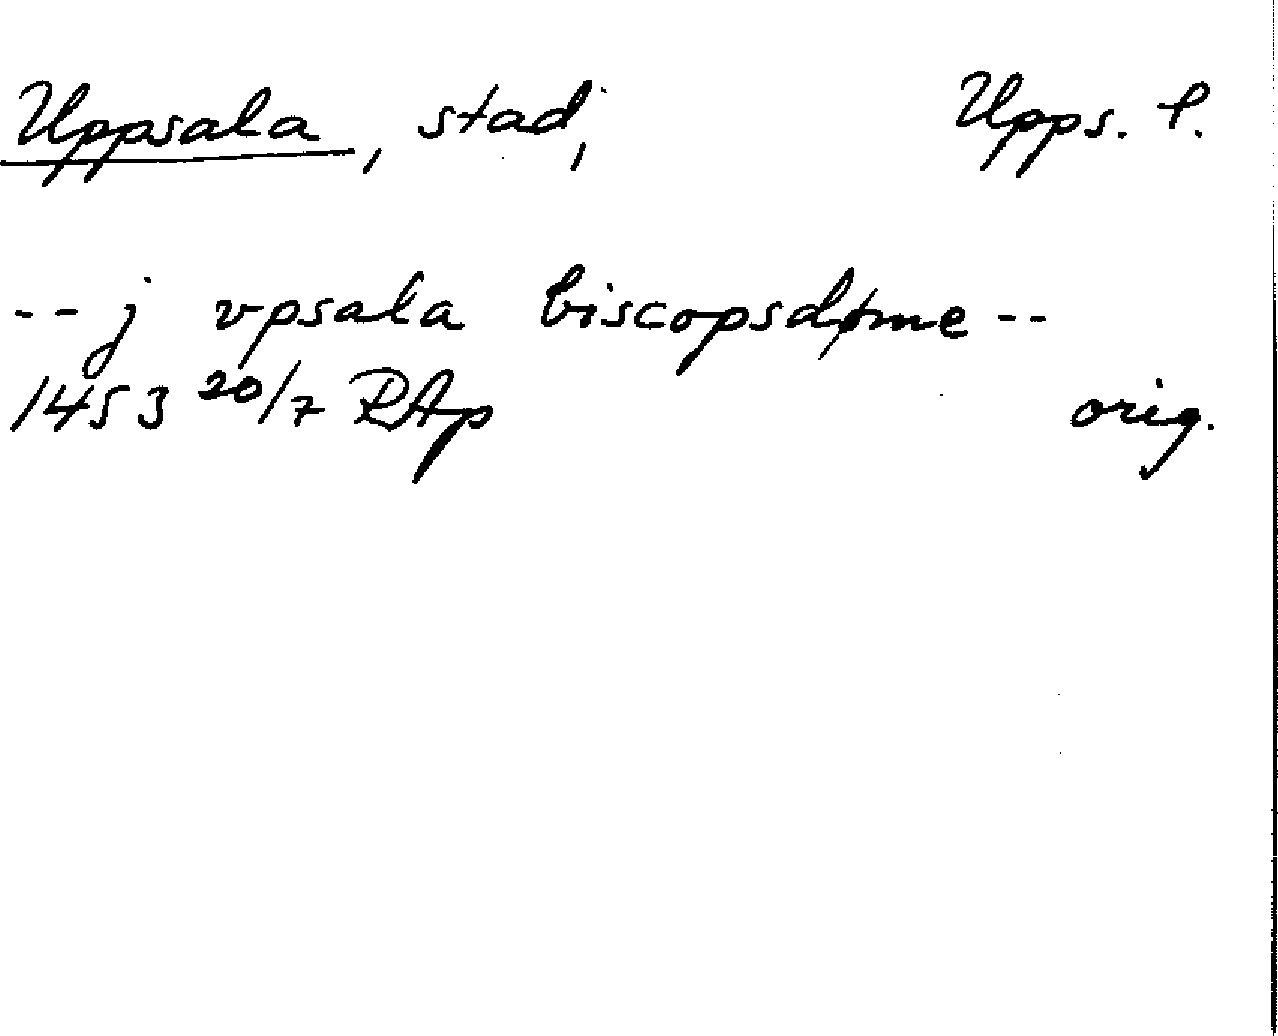 Uppsala, stad, Upps. l.
-- j vpsala biscopsdøme --
1453 20/7 RAp orig.